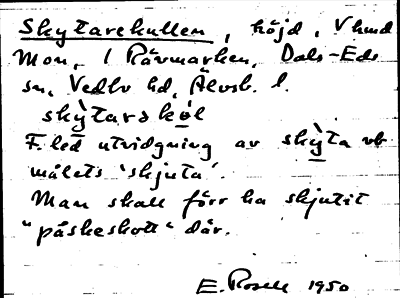 Skytarekullen, höjd, V hmd
Mon, i Rävmarken, Dals-Eds
sn, Vedbo hd, Älvsb. l.
skỳtarskøl
F. led utvidgning av skỳta vb
målets 'skjuta'.
Man skall förr ha skjutit
"påskeskott" där.
E. Rosell 1950